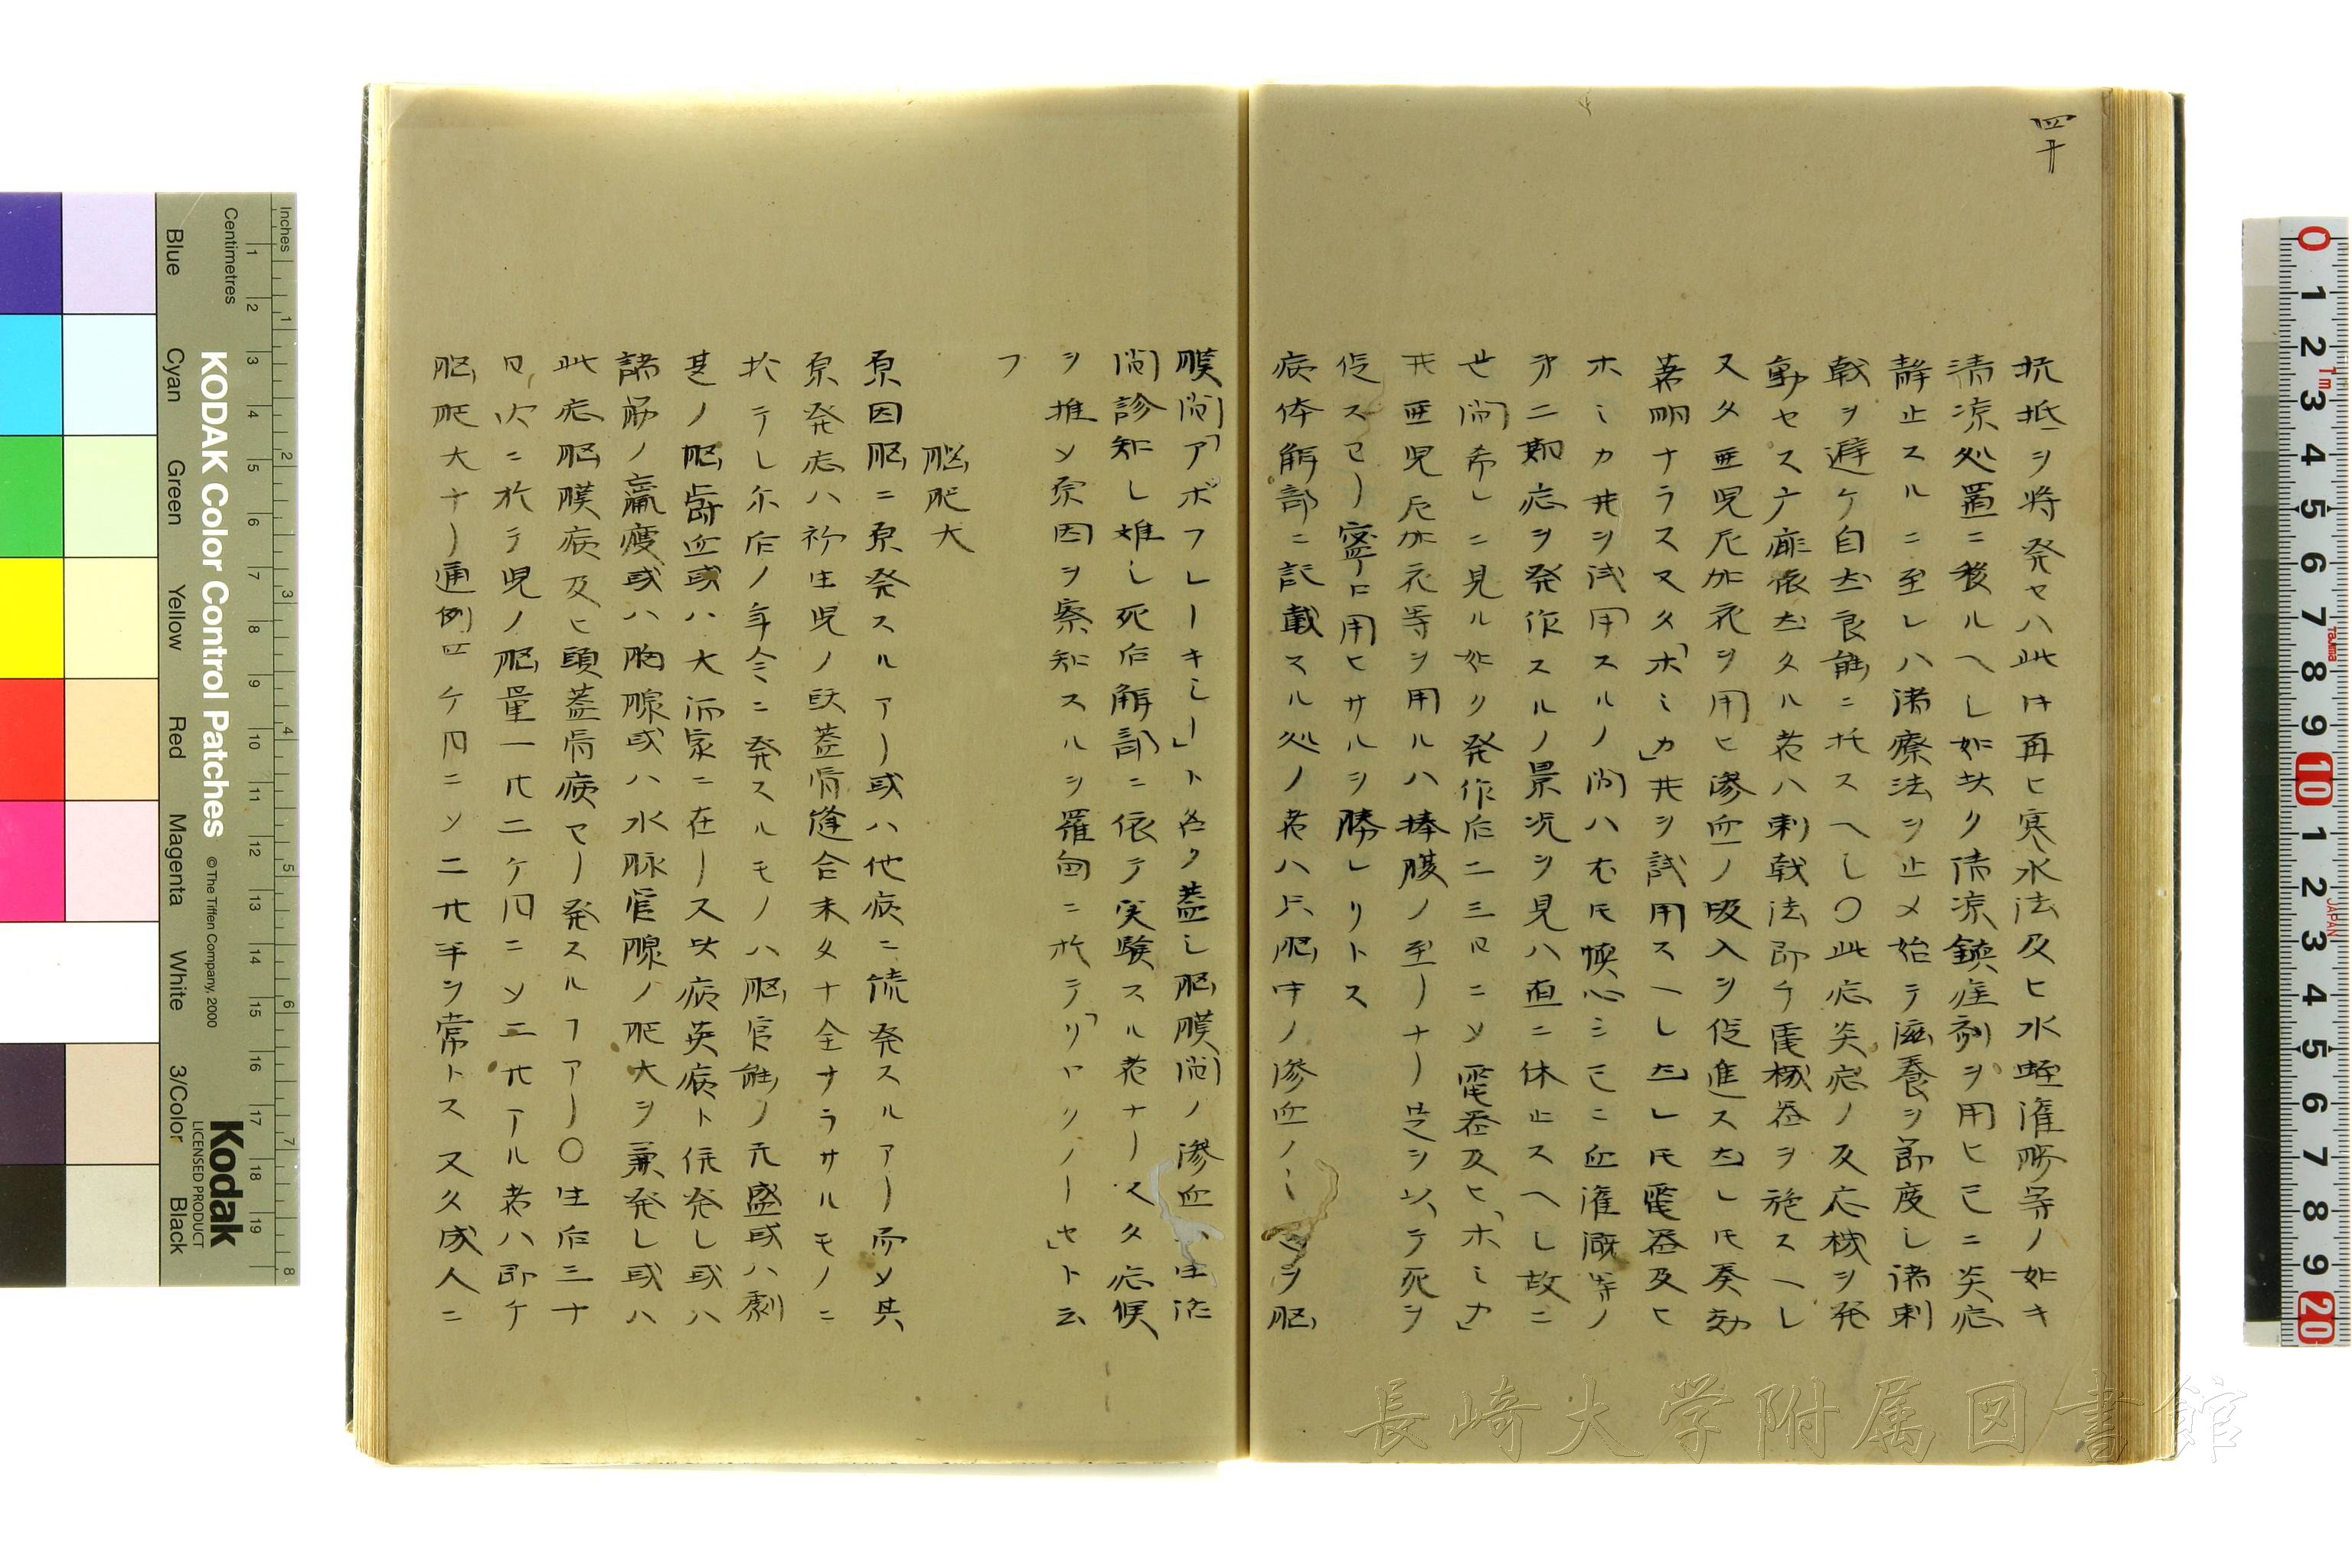 四十
抗抵ヲ将発セハ此时再ヒ寒水法及ヒ水蛭潅腸等ノ如キ
清凉処置ニ移ルヘし如斯ク清凉鎮痙剤ヲ用ヒ已ニ炎症
静止スルニ至レハ諸療法ヲ止メ始テ滋養ヲ節度し諸刺
戟ヲ避ケ自然良能ニ托スヘし〇此症炎症ノ反応機ヲ発
動セス广痲依然タル者ハ刺戟法即チ電機器ヲ施スヘし
又タ亜児尼加花ヲ用ヒ滲血ノ吸入ヲ促進ス然レ𪜈奏効
著明ナラス又タ「ホミカ」丼ヲ試用スヘし然レ𪜈電器及ヒ
ホミカ丼ヲ試用スルノ間ハ尤𪜈慎心シ已ニ血潅漑等ノ
第二期症ヲ発作スルノ景况ヲ見ハ直ニ休止スヘし故ニ
世間希レニ見ル如ク発作后二三日ニメ電器及ヒ「ホミカ」
丼亜児尼加花等ヲ用ルハ捧腹ノ至リナリ是ヲ以テ死ヲ
促スヿリ寧ロ用ヒサルヲ勝レリトス
病体解剖ニ記載スル処ノ者ハ只脳中ノ滲血ノミ
膜間「アポフレーキシー」ト名ク蓋し脳膜間ノ滲血ハ生活
間診知し難し死后解剖ニ依テ実験スル者ナリ又タ症候
ヲ推メ原因ヲ察知スルヲ羅甸ニ於テ
フ
脳肥大
原因脳ニ原発スルアリ或ハ他病ニ続発スルアリ而メ其
原発症ハ初生児ノ頭蓋骨縫合未タ十全ナラサルモノニ
於テし尓后ノ年令ニ発スルモノハ脳官能ノ亢盛或ハ劇
甚ノ脳欝血或ハ大酒家ニ在リ又英病ト併発し或ハ
諸筋ノ羸痩或ハ胸腺或ハ水脉管腺ノ肥大ヲ兼発し或ハ
此症脳膜病及ヒ頭蓋骨病ヨリ発スルヿアリ〇生后三十
日内ニ於テ児ノ脳量一
脳肥大ナリ通例四ケ月ニメ二卄半ヲ常トス又タ成人ニ
長崎大学附属図書館
KODAK Color Control Patches
© The Tiffen Company, 2000
Kodak
LICENSED PRODUCT
Inches
Centimetres
Blue
Cyan
Green
Yellow
Red
Magenta
White
3/Color
Black
JAPAN